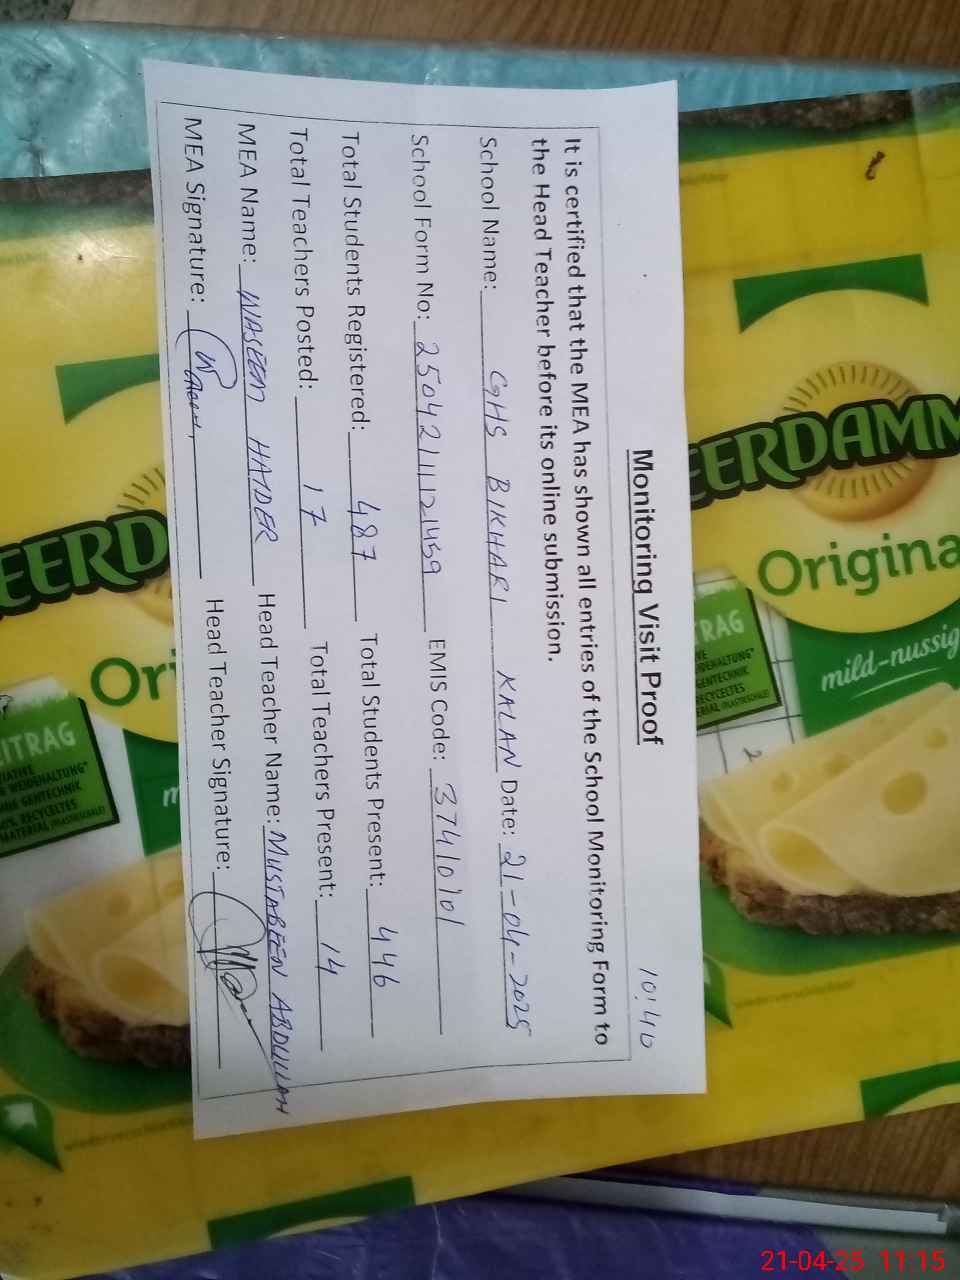 10:40
Monitoring Visit Proof
It is certified that the MEA has shown all entries of the School Monitoring Form to
the Head Teacher before its online submission.
School Name: GHS BIKHARI KALAN Date: 21-04-2025
School Form No: 250421112459 EMIS Code: 37410101
Total Students Registered: 487 Total Students Present: 446
Total Teachers Posted: 17 Total Teachers Present: 14
MEA Name: WASEEM HAIDER Head Teacher Name: MUSTABEEN ABDULLAH
MEA Signature: Head Teacher Signature:
EERDAMM
Origina
mild-nussig
TRAG
WEIDEHALTUNG*
GENTECHNIK
RECYCELTES
MATERIAL
EERD
Ori
EITRAG
WEIDEHALTUNG*
OHNE GENTECHNIK
RECYCELTES
MATERIAL
m
21-04-25 11:15